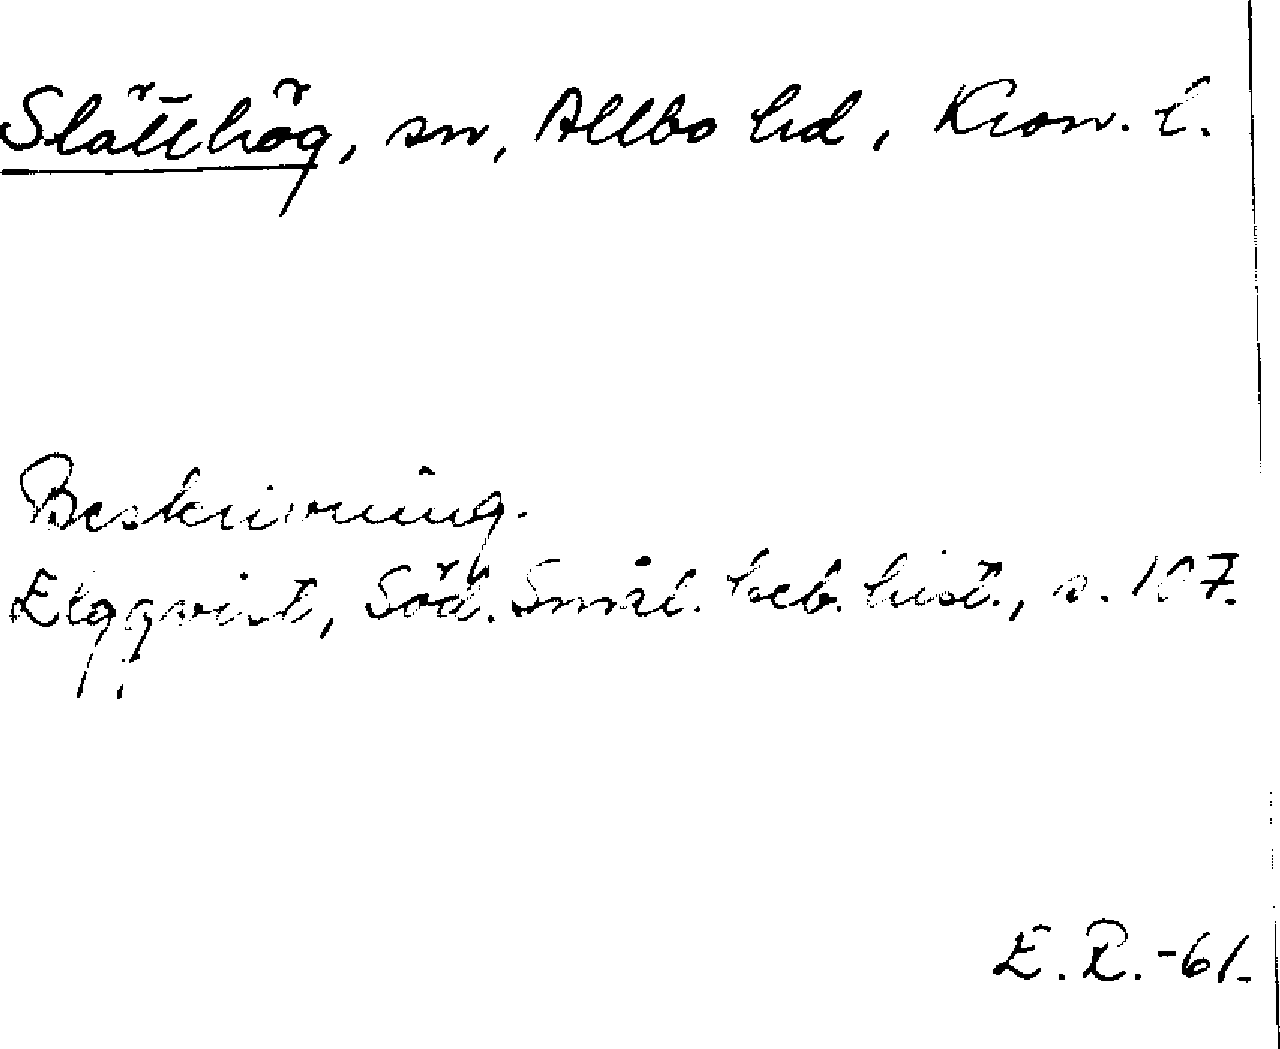 Slätthög, sn, Allbo hd, Kron. l.
Beskrivning.
Elgqvist, Söd. Smål. beb. hist., s. 107.
E. R. -61.